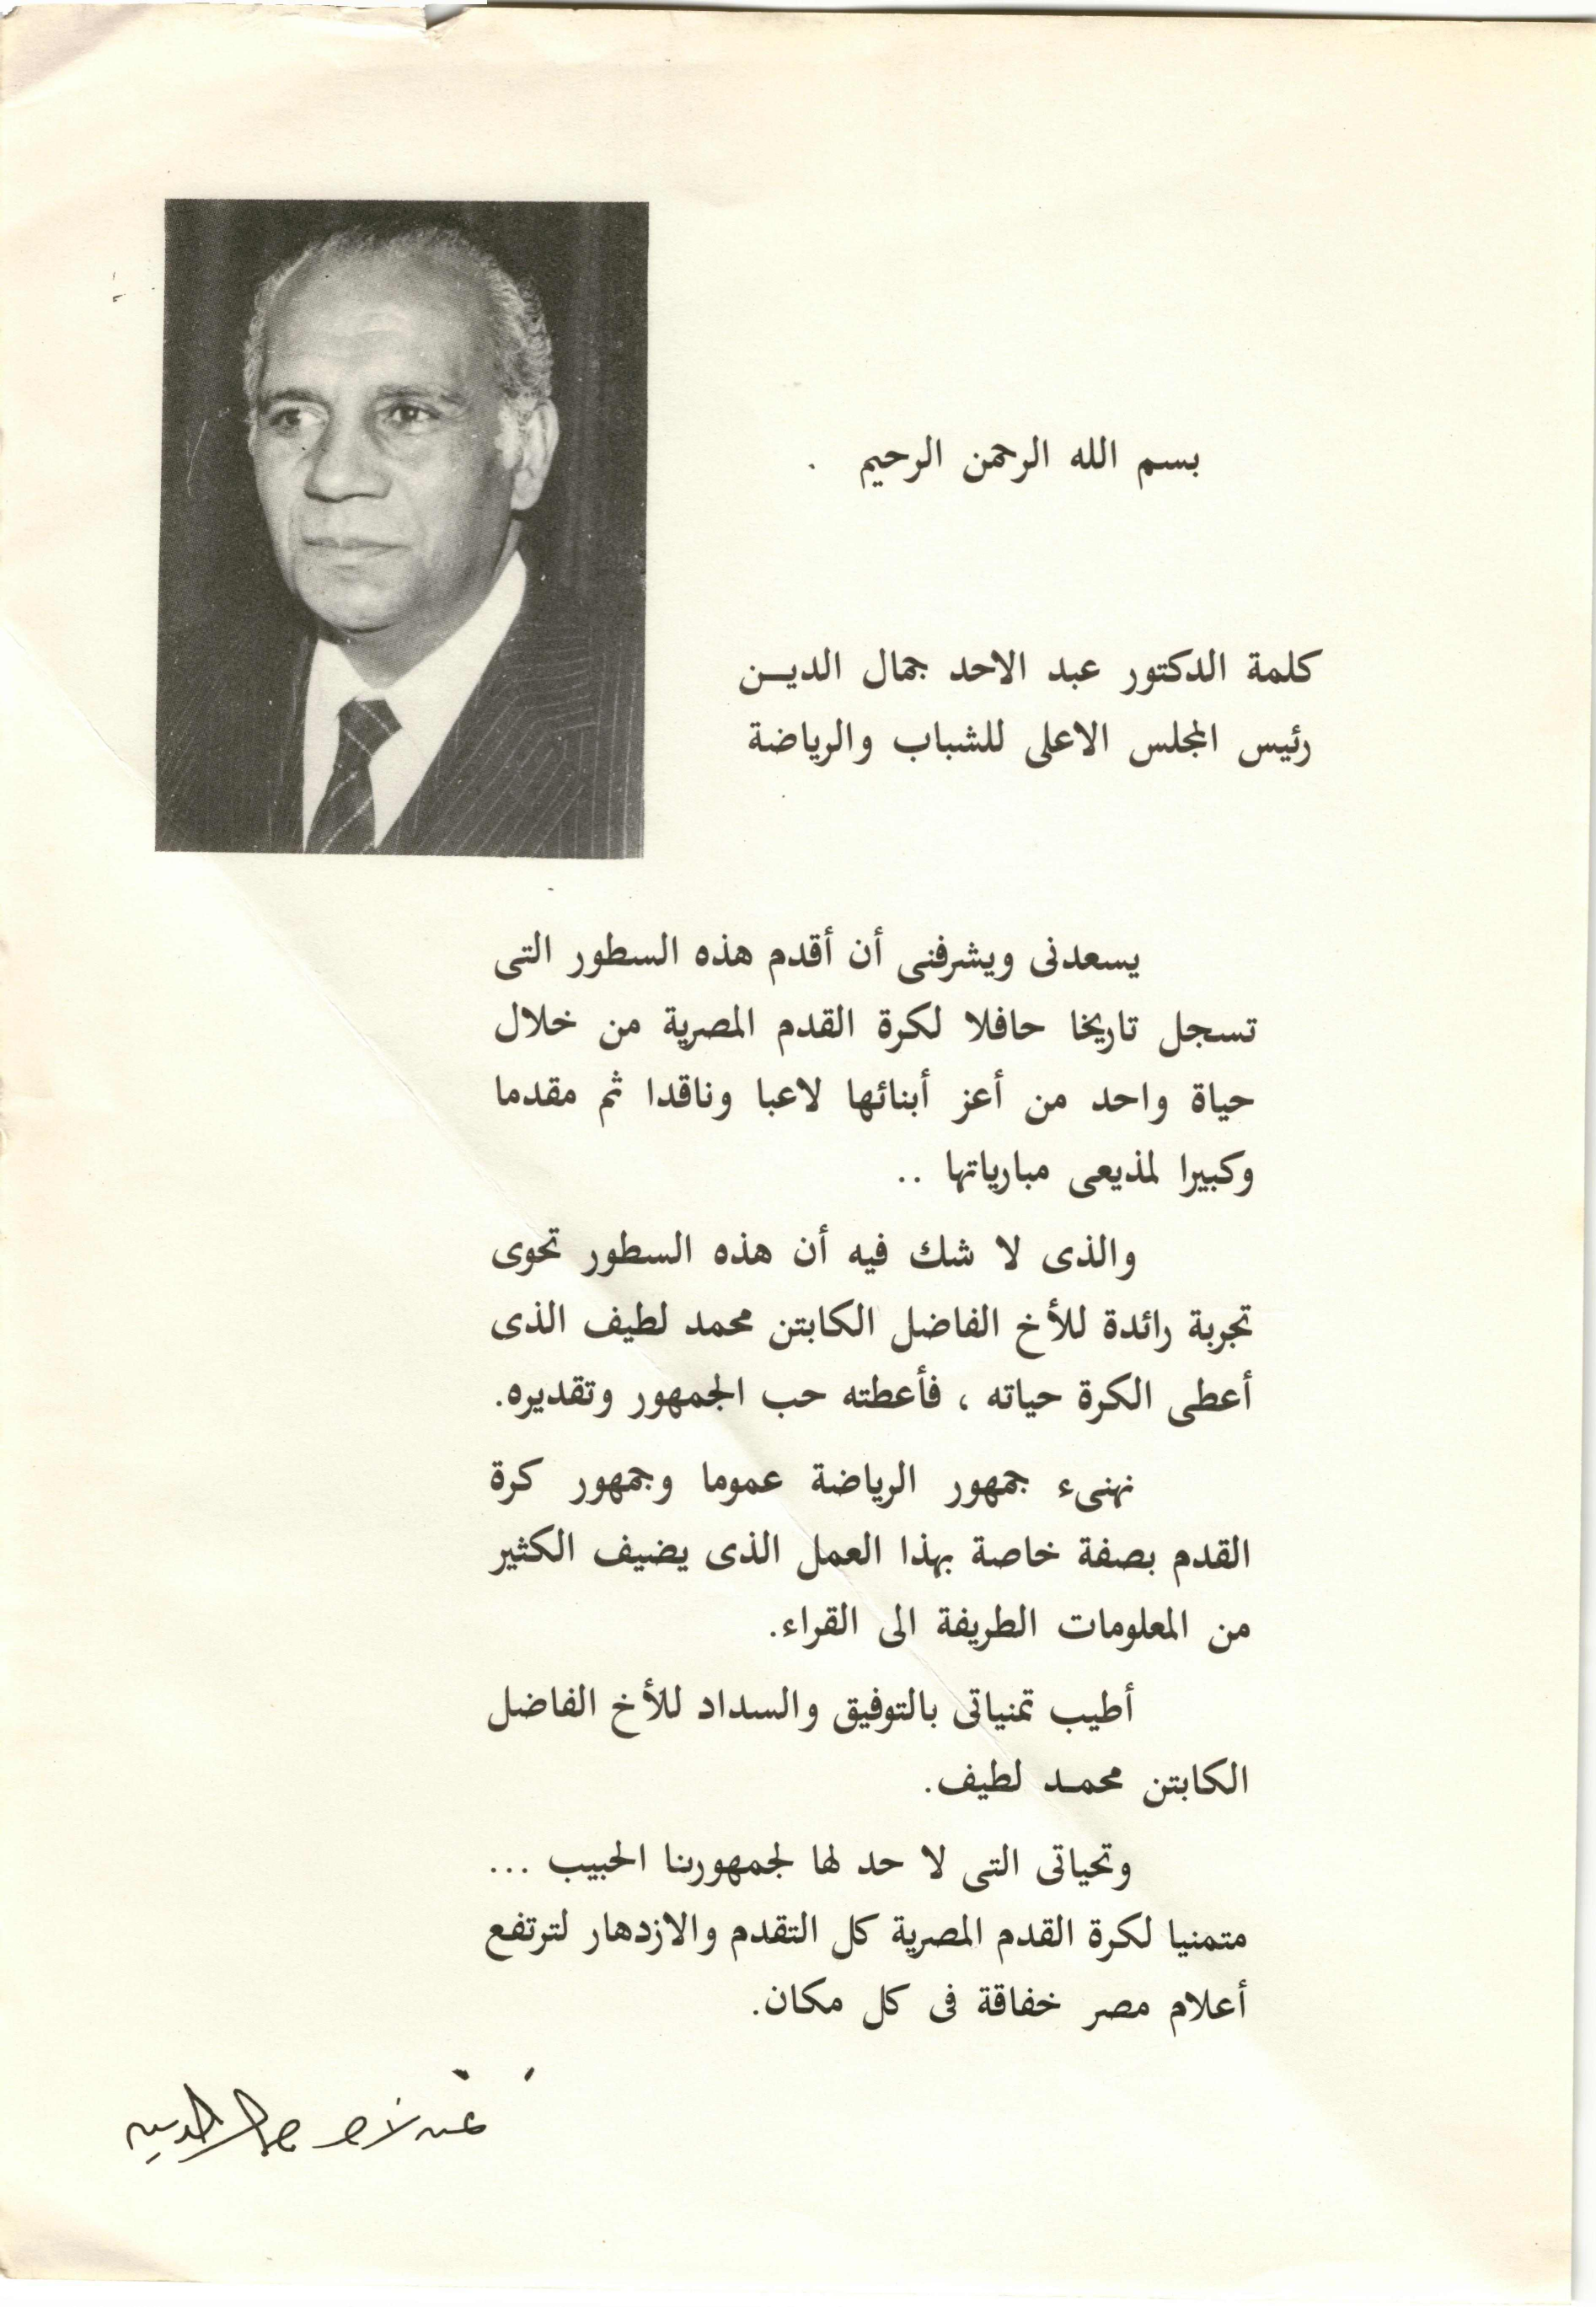 بسم الله الرحمن الرحيم .
كلمة الدكتور عبد الاحد جمال الديــن
رئيس المجلس الاعلى للشباب والرياضة
يسعدنى ويشرفنى أن أقدم هذه السطور التى
تسجل تاريخا حافلا لكرة القدم المصرية من خلال
حياة واحد من أعز أبنائها لاعبا وناقدا ثم مقدما
وكبيرا لمذيعى مبارياتها ..
والذى لا شك فيه أن هذه السطور تحوى
تجربة رائدة للأخ الفاضل الكابتن محمد لطيف الذى
أعطى الكرة حياته ، فأعطته حب الجمهور وتقديره.
نهنىء جمهور الرياضة عموما وجمهور كرة
القدم بصفة خاصة بهذا العمل الذى يضيف الكثير
من المعلومات الطريفة الى القراء.
أطيب تمنياتى بالتوفيق والسداد للأخ الفاضل
الكابتن محمـد لطيف.
وتحياتى التى لا حد لها لجمهورنا الحبيب ...
متمنيا لكرة القدم المصرية كل التقدم والازدهار لترتفع
أعلام مصر خفاقة فى كل مكان.
عبد الاحد جمال الدين